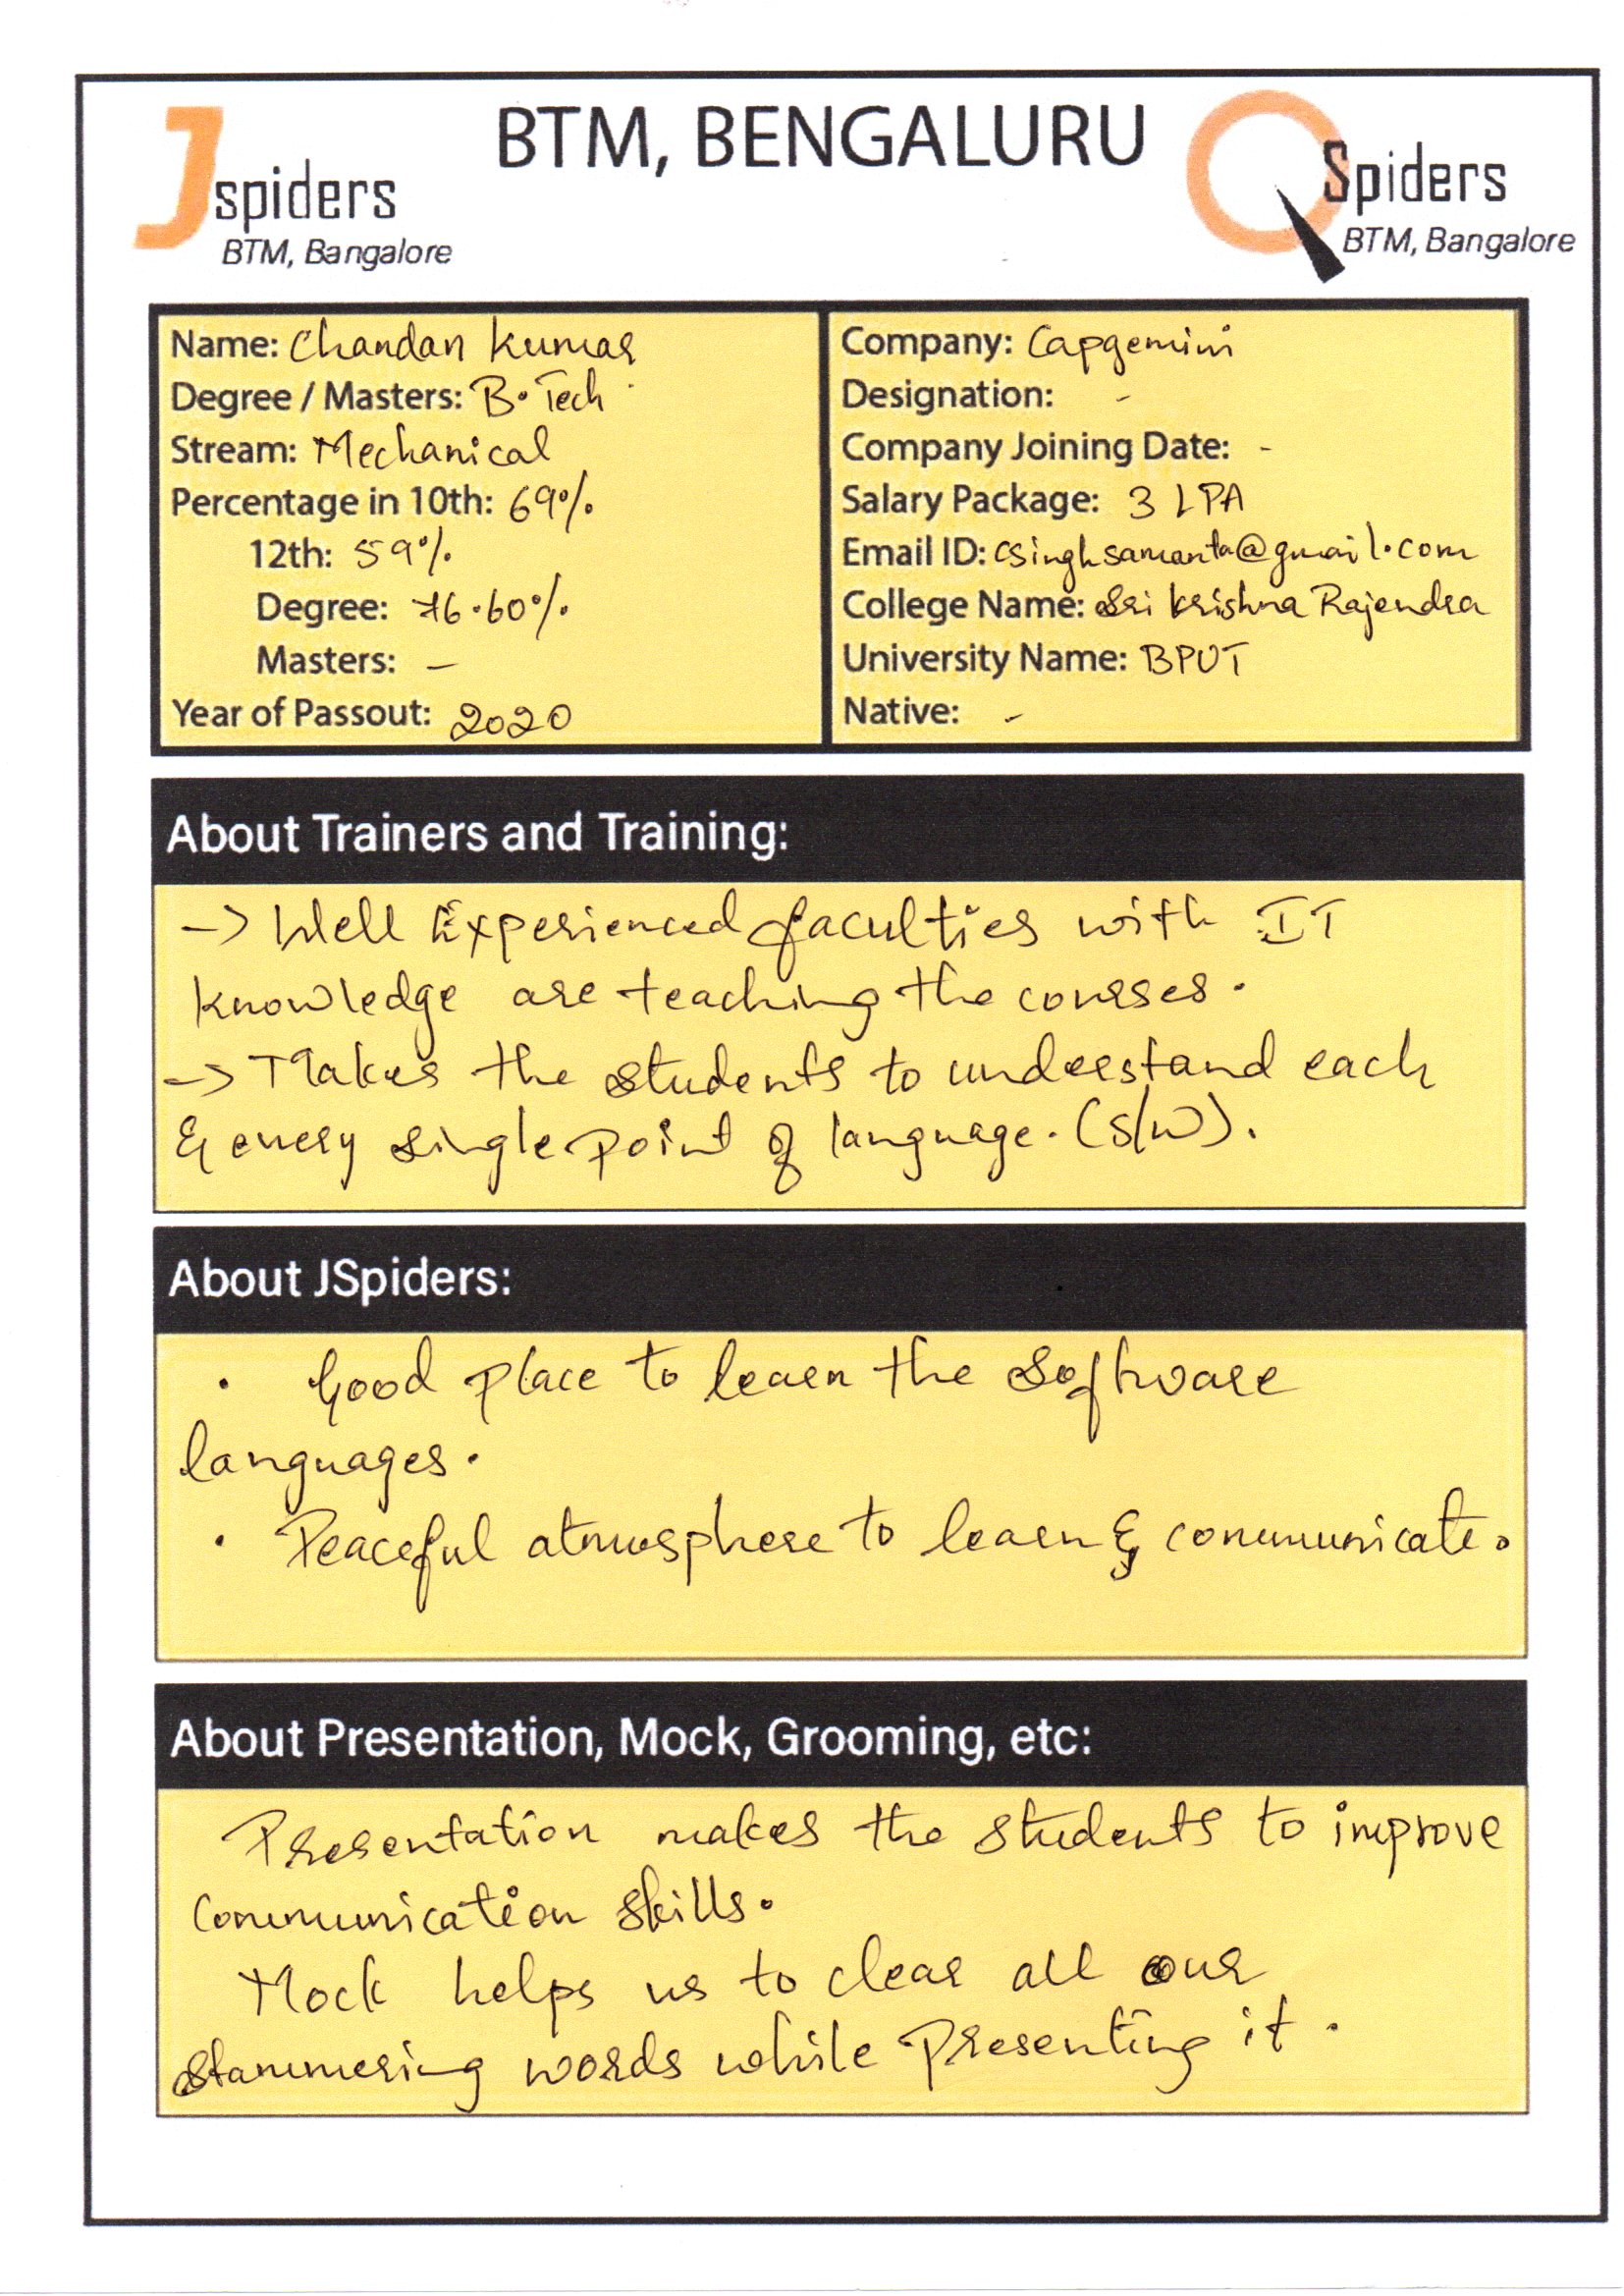 BTM, BENGALURU
Jspiders
BTM, Bangalore
QSpiders
BTM, Bangalore
Name: Chandan Kumar
Degree / Masters: B.Tech
Stream: Mechanical
Percentage in 10th: 69%
12th: 59%
Degree: 76.60%
Masters: -
Year of Passout: 2020
Company: Capgemini
Designation: -
Company Joining Date: -
Salary Package: 3 LPA
Email ID: csinghsamanta@gmail.com
College Name: Sri Krishna Rajendra
University Name: BPUT
Native: -
About Trainers and Training:
-> Well Experienced faculties with IT
knowledge are teaching the courses.
-> Makes the students to understand each
& every single point of language. (S/W).
About JSpiders:
• Good place to learn the software
languages.
• Peaceful atmosphere to learn & communicate.
About Presentation, Mock, Grooming, etc:
Presentation makes the students to improve
communication skills.
Mock helps us to clear all our
stammering words while presenting it.